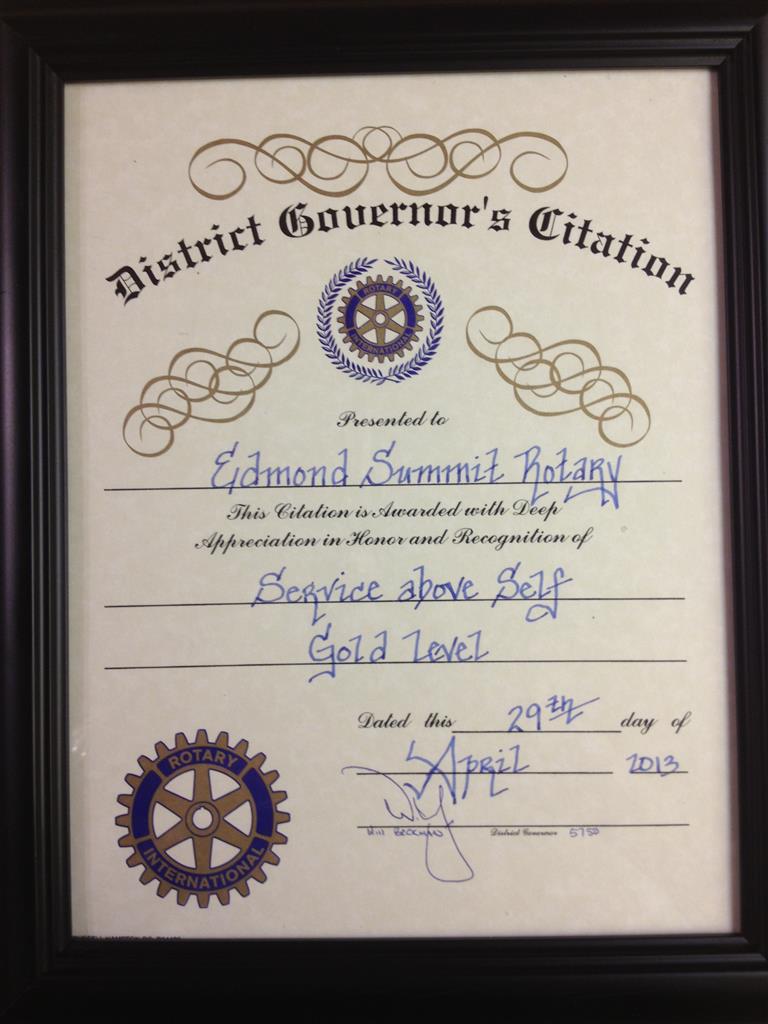 District Governor's Citation
ROTARY
INTERNATIONAL
Presented to
Edmond Summit Rotary
This Citation is Awarded with Deep
Appreciation in Honor and Recognition of
Service above Self
Gold Level
Dated this 29th day of
April 2013
Will Beckman District Governor 5750
ROTARY
INTERNATIONAL